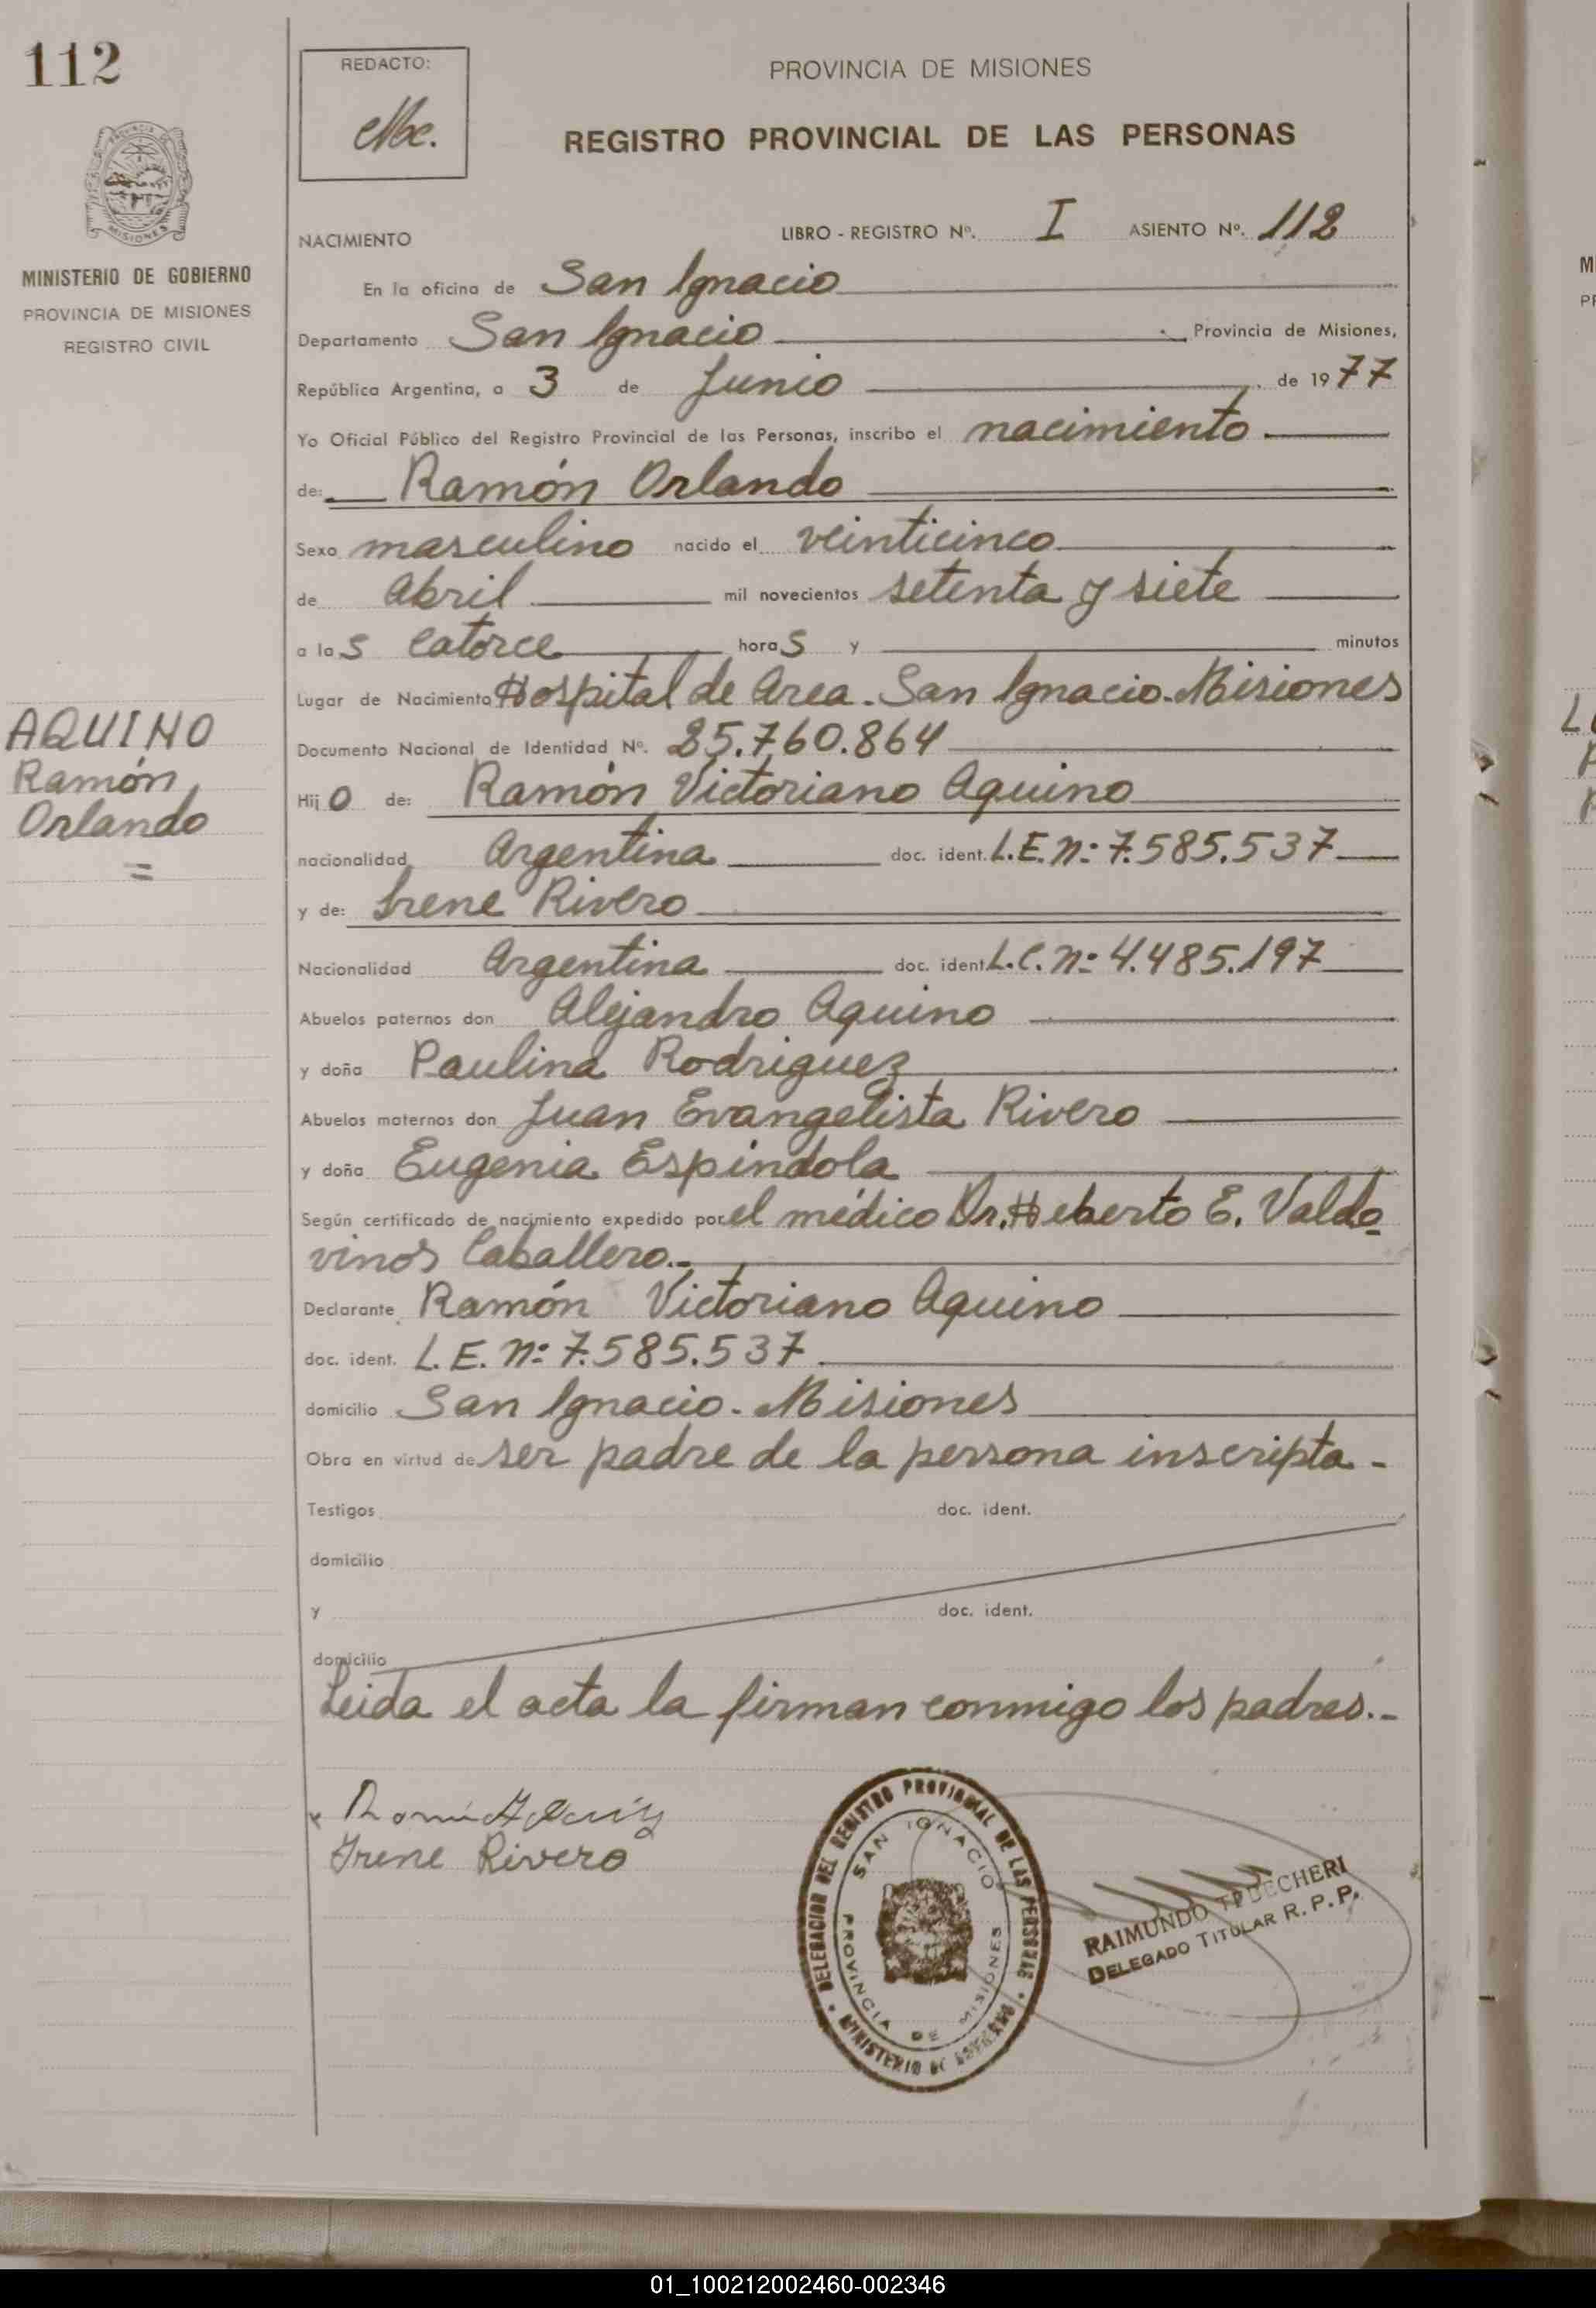 112
REDACTO:
PROVINCIA DE MISIONES
REGISTRO PROVINCIAL DE LAS PERSONAS
MISIONES
MINISTERIO DE GOBIERNO
PROVINCIA DE MISIONES
REGISTRO CIVIL
NACIMIENTO LIBRO - REGISTRO Nº. I ASIENTO Nº. 112
En la oficina de San Ignacio
Departamento San Ignacio Provincia de Misiones,
República Argentina, a 3 de Junio de 1977
Yo Oficial Público del Registro Provincial de las Personas, inscribo el nacimiento
de: Ramón Orlando
Sexo masculino nacido el veinticinco
de abril mil novecientos setenta y siete
a las catorce horas y minutos
Lugar de Nacimiento Hospital de Area. San Ignacio. Misiones
AQUINO
Ramón
Orlando
Documento Nacional de Identidad Nº. 25.760.864
Hijo de: Ramón Victoriano Aquino
nacionalidad Argentina doc. ident. L.E. nº 7.585.537
y de: Irene Rivero
Nacionalidad Argentina doc. ident. L.C. nº 4.485.197
Abuelos paternos don Alejandro Aquino
y doña Paulina Rodriguez
Abuelos maternos don Juan Evangelista Rivero
y doña Eugenia Espíndola
Según certificado de nacimiento expedido por el médico Dr. Heberto E. Valdo
vinos Caballero.-
Declarante Ramón Victoriano Aquino
doc. ident. L.E. nº 7.585.537
domicilio San Ignacio. Misiones
Obra en virtud de ser padre de la persona inscripta.-
Testigos doc. ident.
domicilio
y doc. ident.
domicilio
Leida el acta la firman conmigo los padres.-
Irene Rivero
DELEGACION DEL REGISTRO PROVINCIAL DE LAS PERSONAS
MINISTERIO DE GOBIERNO
SAN IGNACIO
PROVINCIA DE MISIONES
RAIMUNDO
DELEGADO TITULAR R.P.P.
01_100212002460-002346